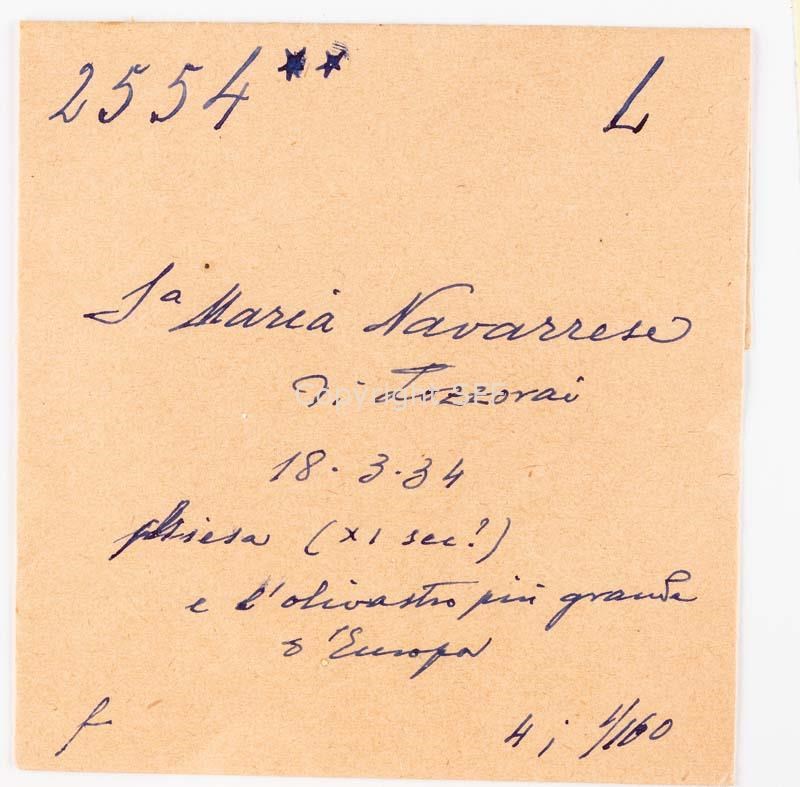 2554** L
Sª Maria Navarrese
di Tozzorai
18.3.34
chiesa (XI sec?)
e l'olivastro più grande
d'Europa
f 4; 1/160
Copyright